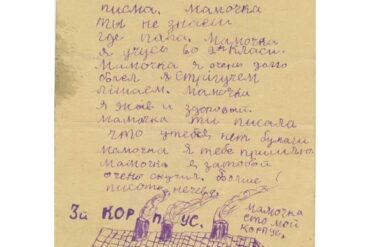 писма. Мамочка
ты не знаеш
где папа. Мамочка
я учусь во 2м класи.
Мамочка я очено долго
болел я стригучем
лишаем. Мамочка
я жыв и здоровый.
Мамочка ти писала
что утебя нет бумаги
мамочка я тебе пришлю.
Мамочка я затобой
очено скучил. Больше
писать нечево!
3й КОРПУС.
Мамочка
ето мой
корпус.